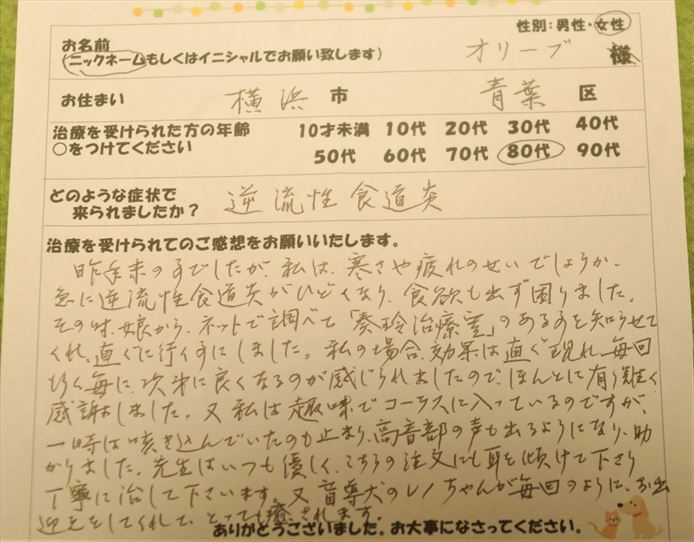 性別：男性・女性
お名前
（ニックネームもしくはイニシャルでお願い致します）
オリーブ 様
お住まい 横浜 市 青葉 区
治療を受けられた方の年齢 10才未満 10代 20代 30代 40代
○をつけてください 50代 60代 70代 80代 90代
どのような症状で
来られましたか？ 逆流性食道炎
治療を受けられてのご感想をお願いいたします。
昨年末の事でしたが、私は、寒さや疲れのせいでしょうか、
急に逆流性食道炎がひどくなり、食欲も出ず困りました。
その時、娘から、ネットで調べて「奏玲治療室」のある事を知らせて
くれ、直ぐに行く事にしました。私の場合、効果は直ぐ現れ、毎回
行く毎に、次第に良くなるのが感じられましたので、ほんとに有り難く
感謝しました。又私は趣味でコーラスに入っているのですが、
一時は咳き込んでいたのも止まり、高音部の声も出るようになり、助
かりました。先生はいつも優しく、こちらの注文にも耳を傾けて下さり
丁寧に治して下さいます。又盲導犬のレノちゃんが毎回のように、お出
迎えをしてくれて、とっても癒されます。
ありがとうございました。お大事になさってください。